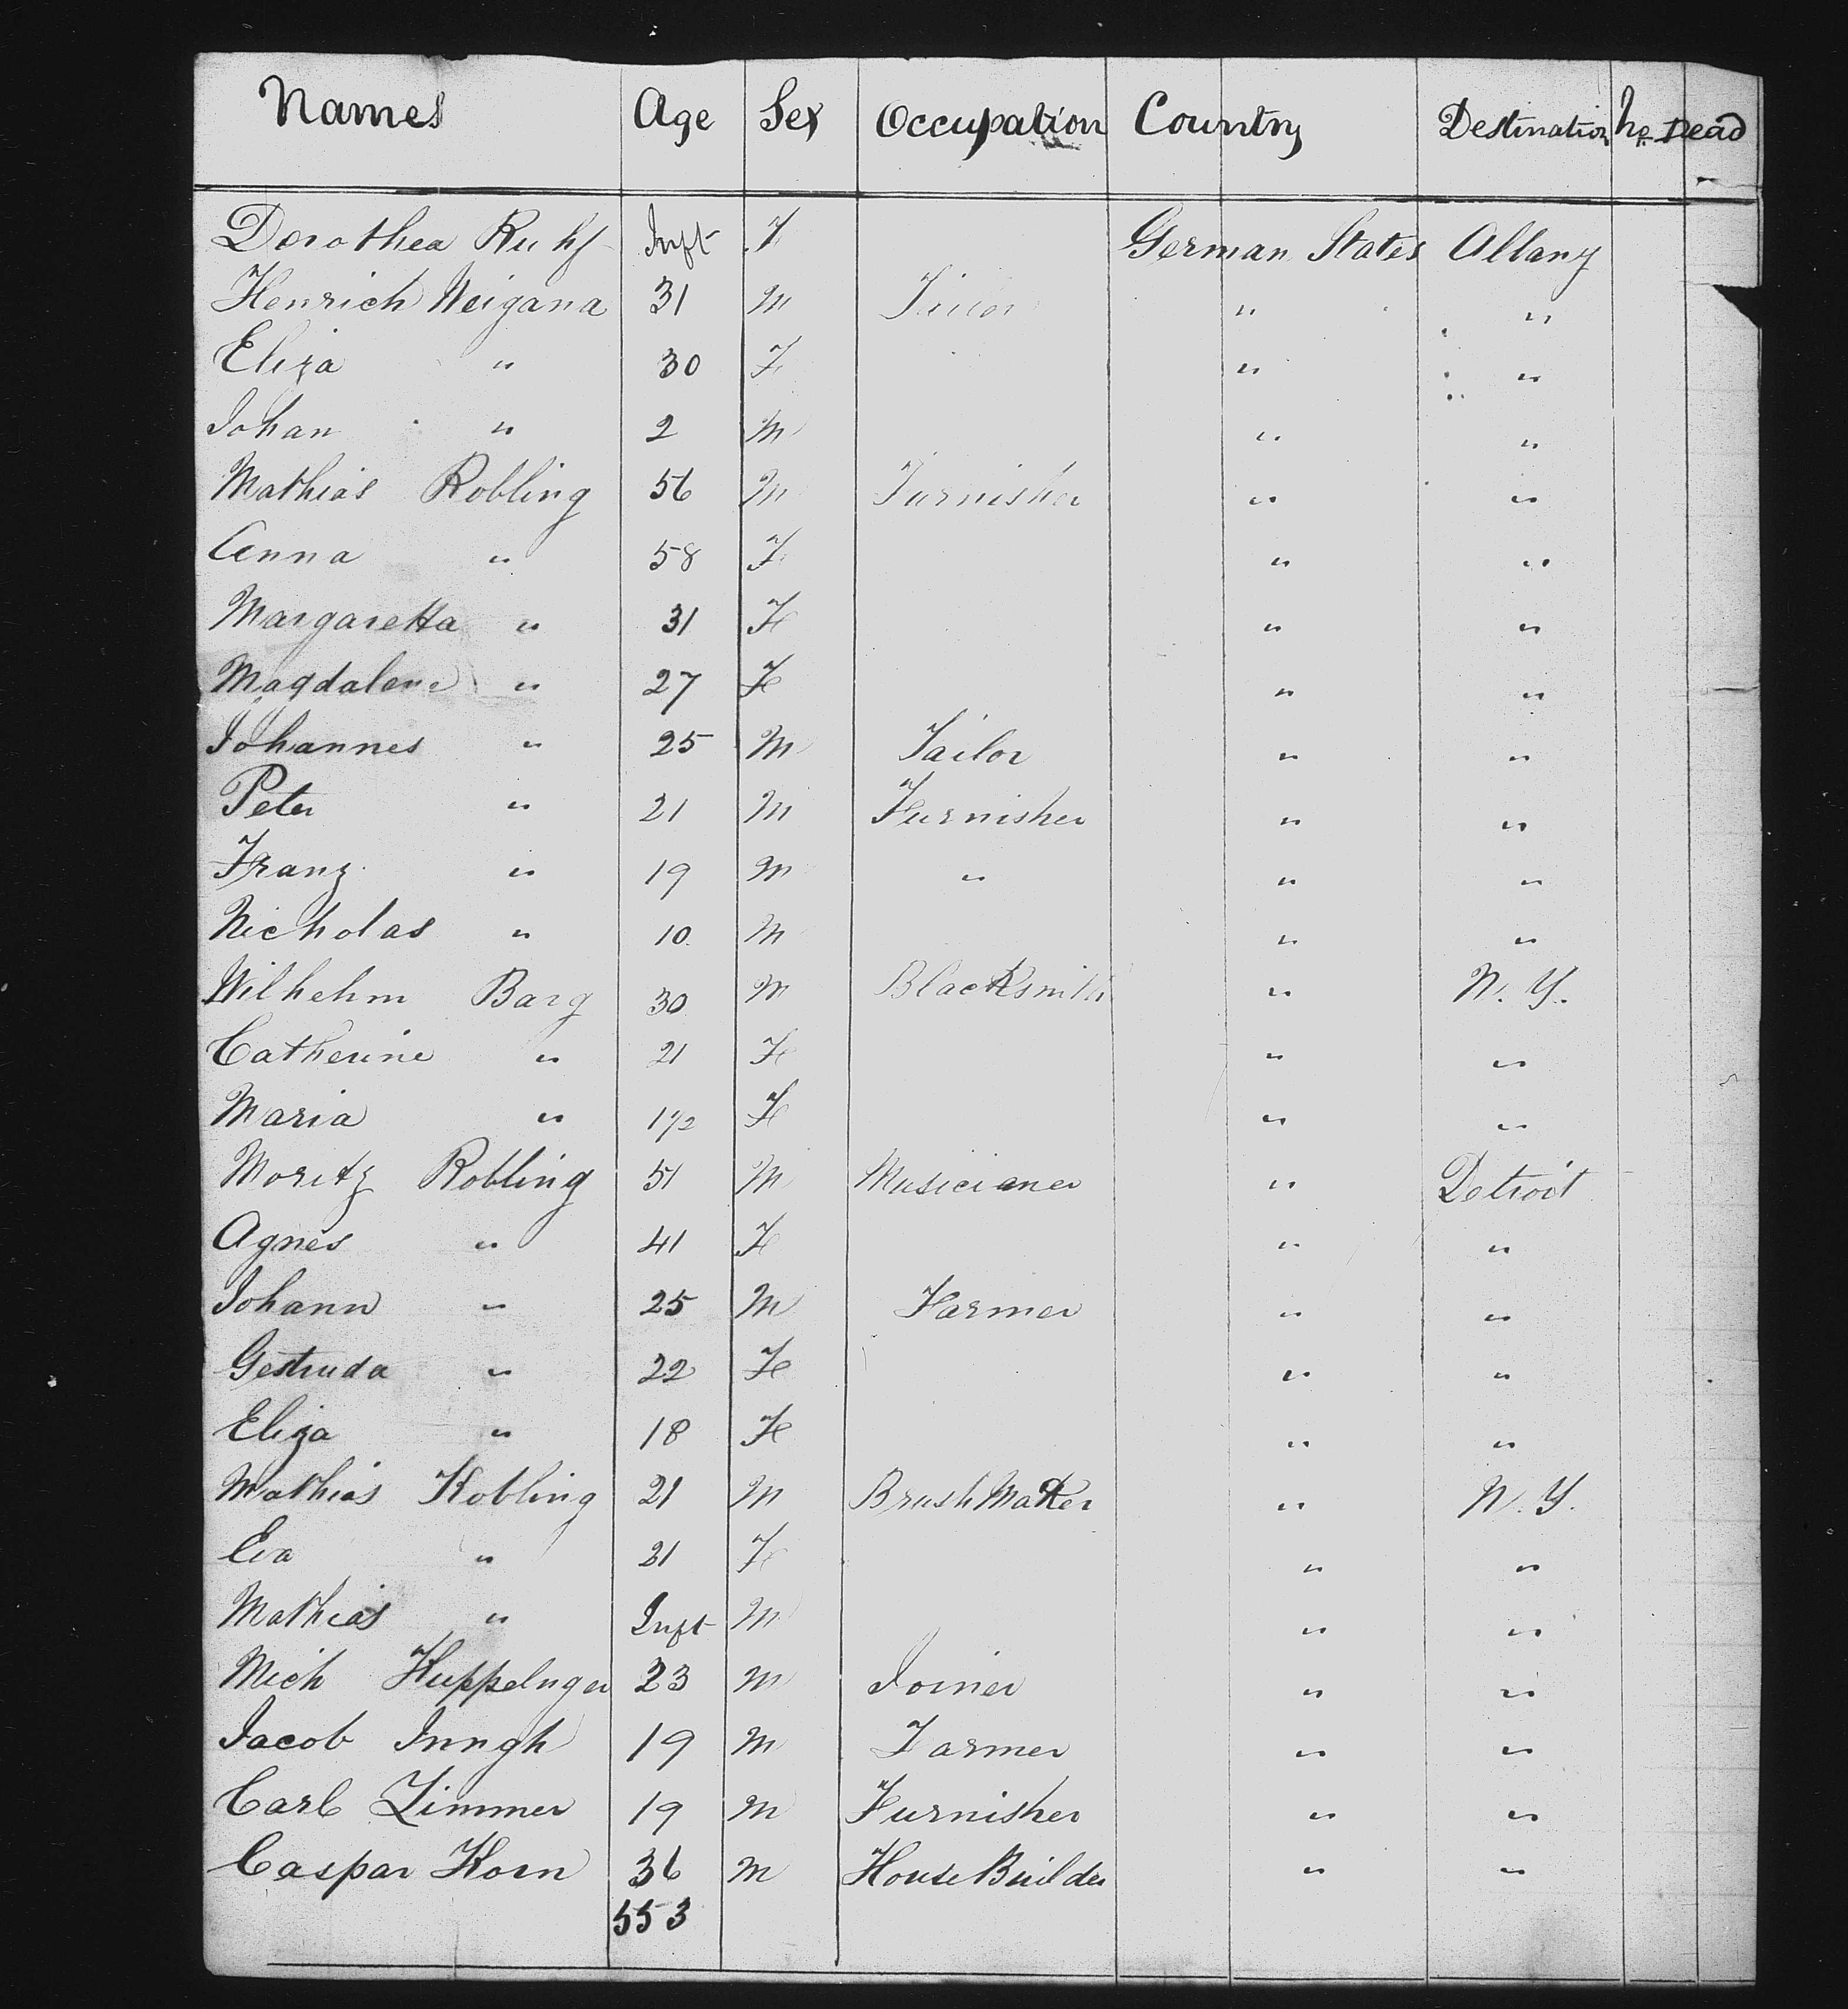 Names Age Sex Occupation Country Destination Dead
Dorothea Ruhf Inft F German States Albany
Henrich Weigana 31 M " "
Eliza " 30 F " "
Johan " 2 M " "
Mathias Robling 56 M Furnisher " "
Anna " 58 F " "
Margaretta " 31 F " "
Magdalene " 27 F " "
Johannes " 25 M Tailor " "
Peter " 21 M Furnisher " "
Franz " 19 M " " "
Nicholas " 10 M " "
Wilhelm Barg 30 M Blacksmith " N. Y.
Catherine " 21 F " "
Maria " 1 1/2 F " "
Moritz Robling 51 M Musicianer " Detroit
Agnes " 41 F " "
Johann " 25 M Farmer " "
Gestruda " 22 F " "
Eliza " 18 F " "
Mathias Kobling 21 M Brush Maker " N. Y.
Eva " 21 F " "
Mathias " Inft M " "
Mich Huppelnger 23 M Joiner " "
Jacob Inngh 19 M Farmer " "
Carl Zimmer 19 M Furnisher " "
Caspar Korn 36 M House Builder " "
553